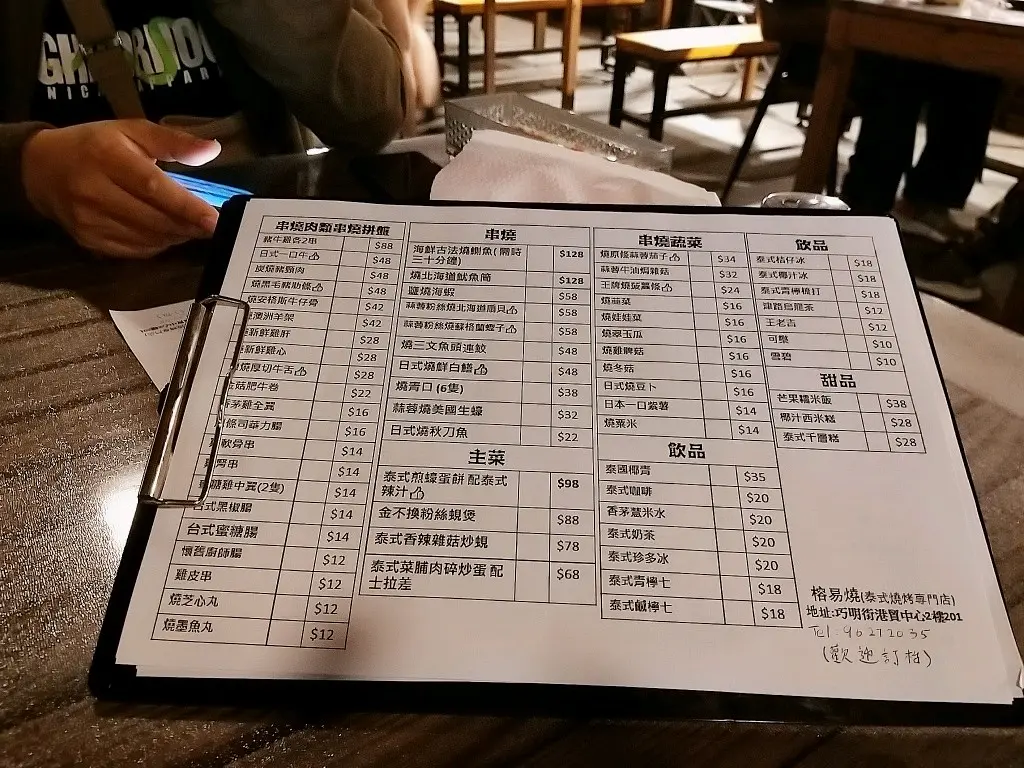 串燒肉類串燒拼盤
豬牛雞各2串 $88
日式一口牛 $48
炭燒豬頸肉 $48
燒黑毛豬肋條 $48
燒安格斯牛仔骨 $42
澳洲羊架 $42
新鮮雞肝 $28
新鮮雞心 $28
燒厚切牛舌 $28
金菇肥牛卷 $22
香茅雞全翼 $16
條司華力腸 $16
軟骨串 $14
腎串 $14
糖雞中翼(2隻) $14
台式黑椒腸 $14
台式蜜糖腸 $14
懷舊廚師腸 $12
雞皮串 $12
燒芝心丸 $12
燒墨魚丸 $12
串燒
海鮮古法燒鯽魚(需時三十分鐘) $128
燒北海道魷魚筒 $128
鹽燒海蝦 $58
蒜蓉粉絲燒北海道扇貝 $58
蒜蓉粉絲燒蘇格蘭蟶子 $58
燒三文魚頭連鮫 $48
日式燒鮮白鱔 $48
燒青口 (6隻) $38
蒜蓉燒美國生蠔 $32
日式燒秋刀魚 $22
主菜
泰式煎蠔蛋餅 配泰式
辣汁 $98
金不換粉絲蜆煲 $88
泰式香辣雜菇炒蜆 $78
泰式菜脯肉碎炒蛋 配
士拉差 $68
串燒蔬菜
燒原條蒜蓉茄子 $34
蒜蓉牛油焗雜菇 $32
王牌燒菠蘿條 $24
燒韮菜 $16
燒娃娃菜 $16
燒翠玉瓜 $16
燒雞髀菇 $16
燒冬菇 $16
日式燒豆卜 $16
日本一口紫薯 $14
燒粟米 $14
飲品
泰國椰青 $35
泰式咖啡 $20
香茅薏米水 $20
泰式奶茶 $20
泰式珍多冰 $20
泰式青檸七 $18
泰式鹹檸七 $18
飲品
泰式桔仔冰 $18
泰式椰汁冰 $18
泰式青檸梳打 $18
津路烏龍茶 $12
王老吉 $12
可樂 $10
雪碧 $10
甜品
芒果糯米飯 $38
椰汁西米糕 $28
泰式千層糕 $28
榕易燒(泰式燒烤專門店)
地址:巧明街港貿中心2樓201
Tel: 96272035
(歡迎訂枱)